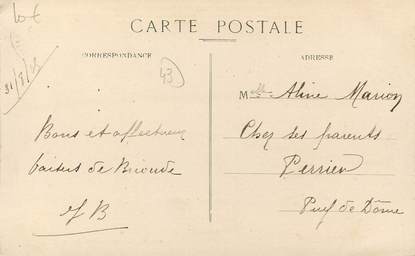 lot
CARTE POSTALE
CORRESPONDANCE
43
ADRESSE
Mlle Aline Marion
Chez ses parents
Perrier
Puy de Dôme
Bons et affectueux
baisers de Brioude